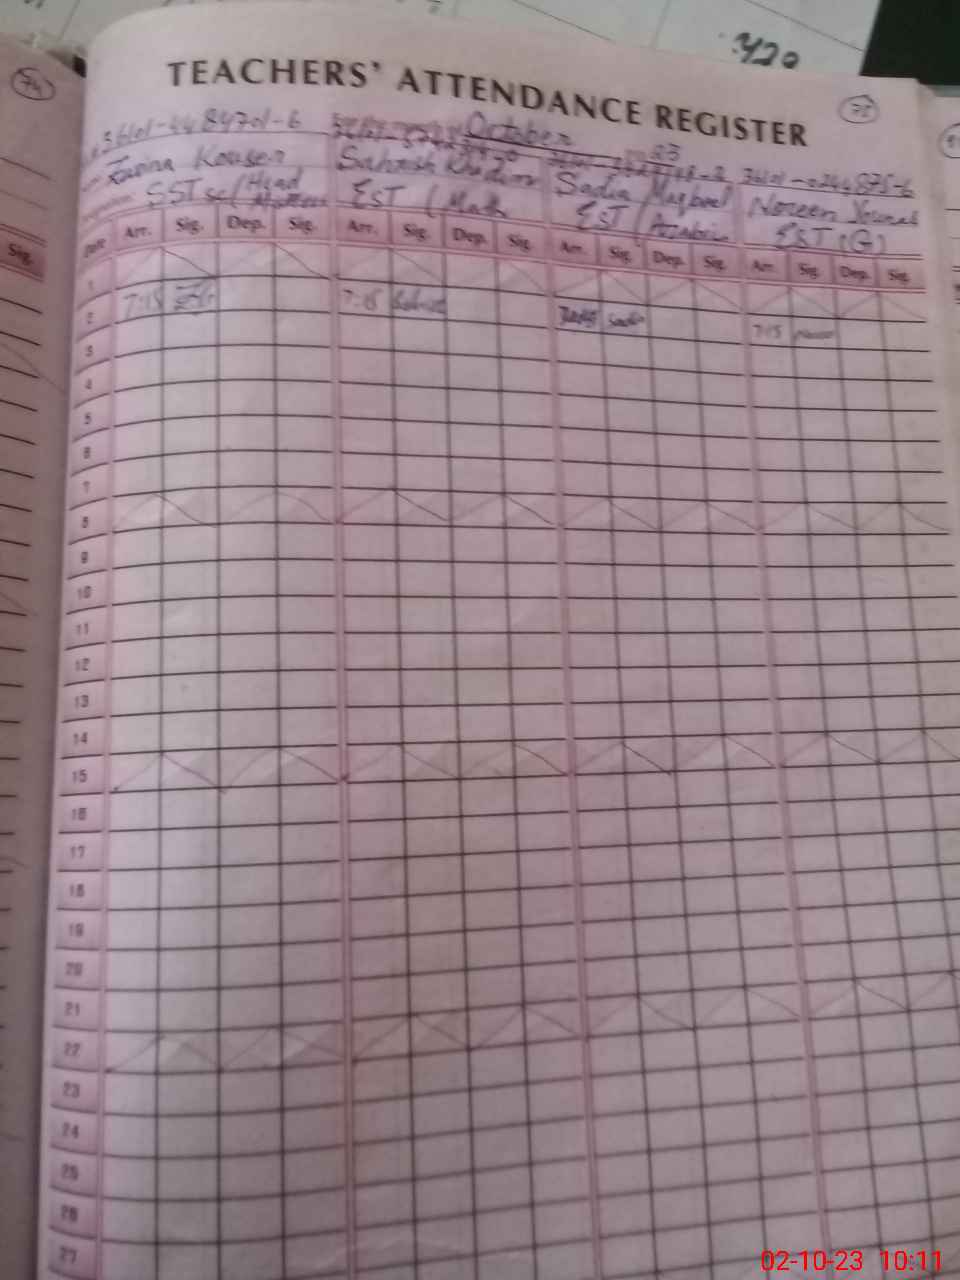 TEACHERS' ATTENDANCE REGISTER
74
75
October
23
36101-4484701-6
36101-0244875-6
Zarina Kouser
Sehrish Khadim
Sadia Maqbool
Noreen Younas
SST sc/Head
EST (Math
EST (Arabic
EST (G)
Date Arr. Sig. Dep. Sig. Arr. Sig. Dep. Sig. Arr. Sig. Dep. Sig. Arr. Sig. Dep. Sig.
Sig.
1
2 7:15 7:15 Sadia 7:15
3
4
5
6
7
8
9
10
11
12
13
14
15
16
17
18
19
20
21
22
23
24
25
26
27
02-10-23 10:11